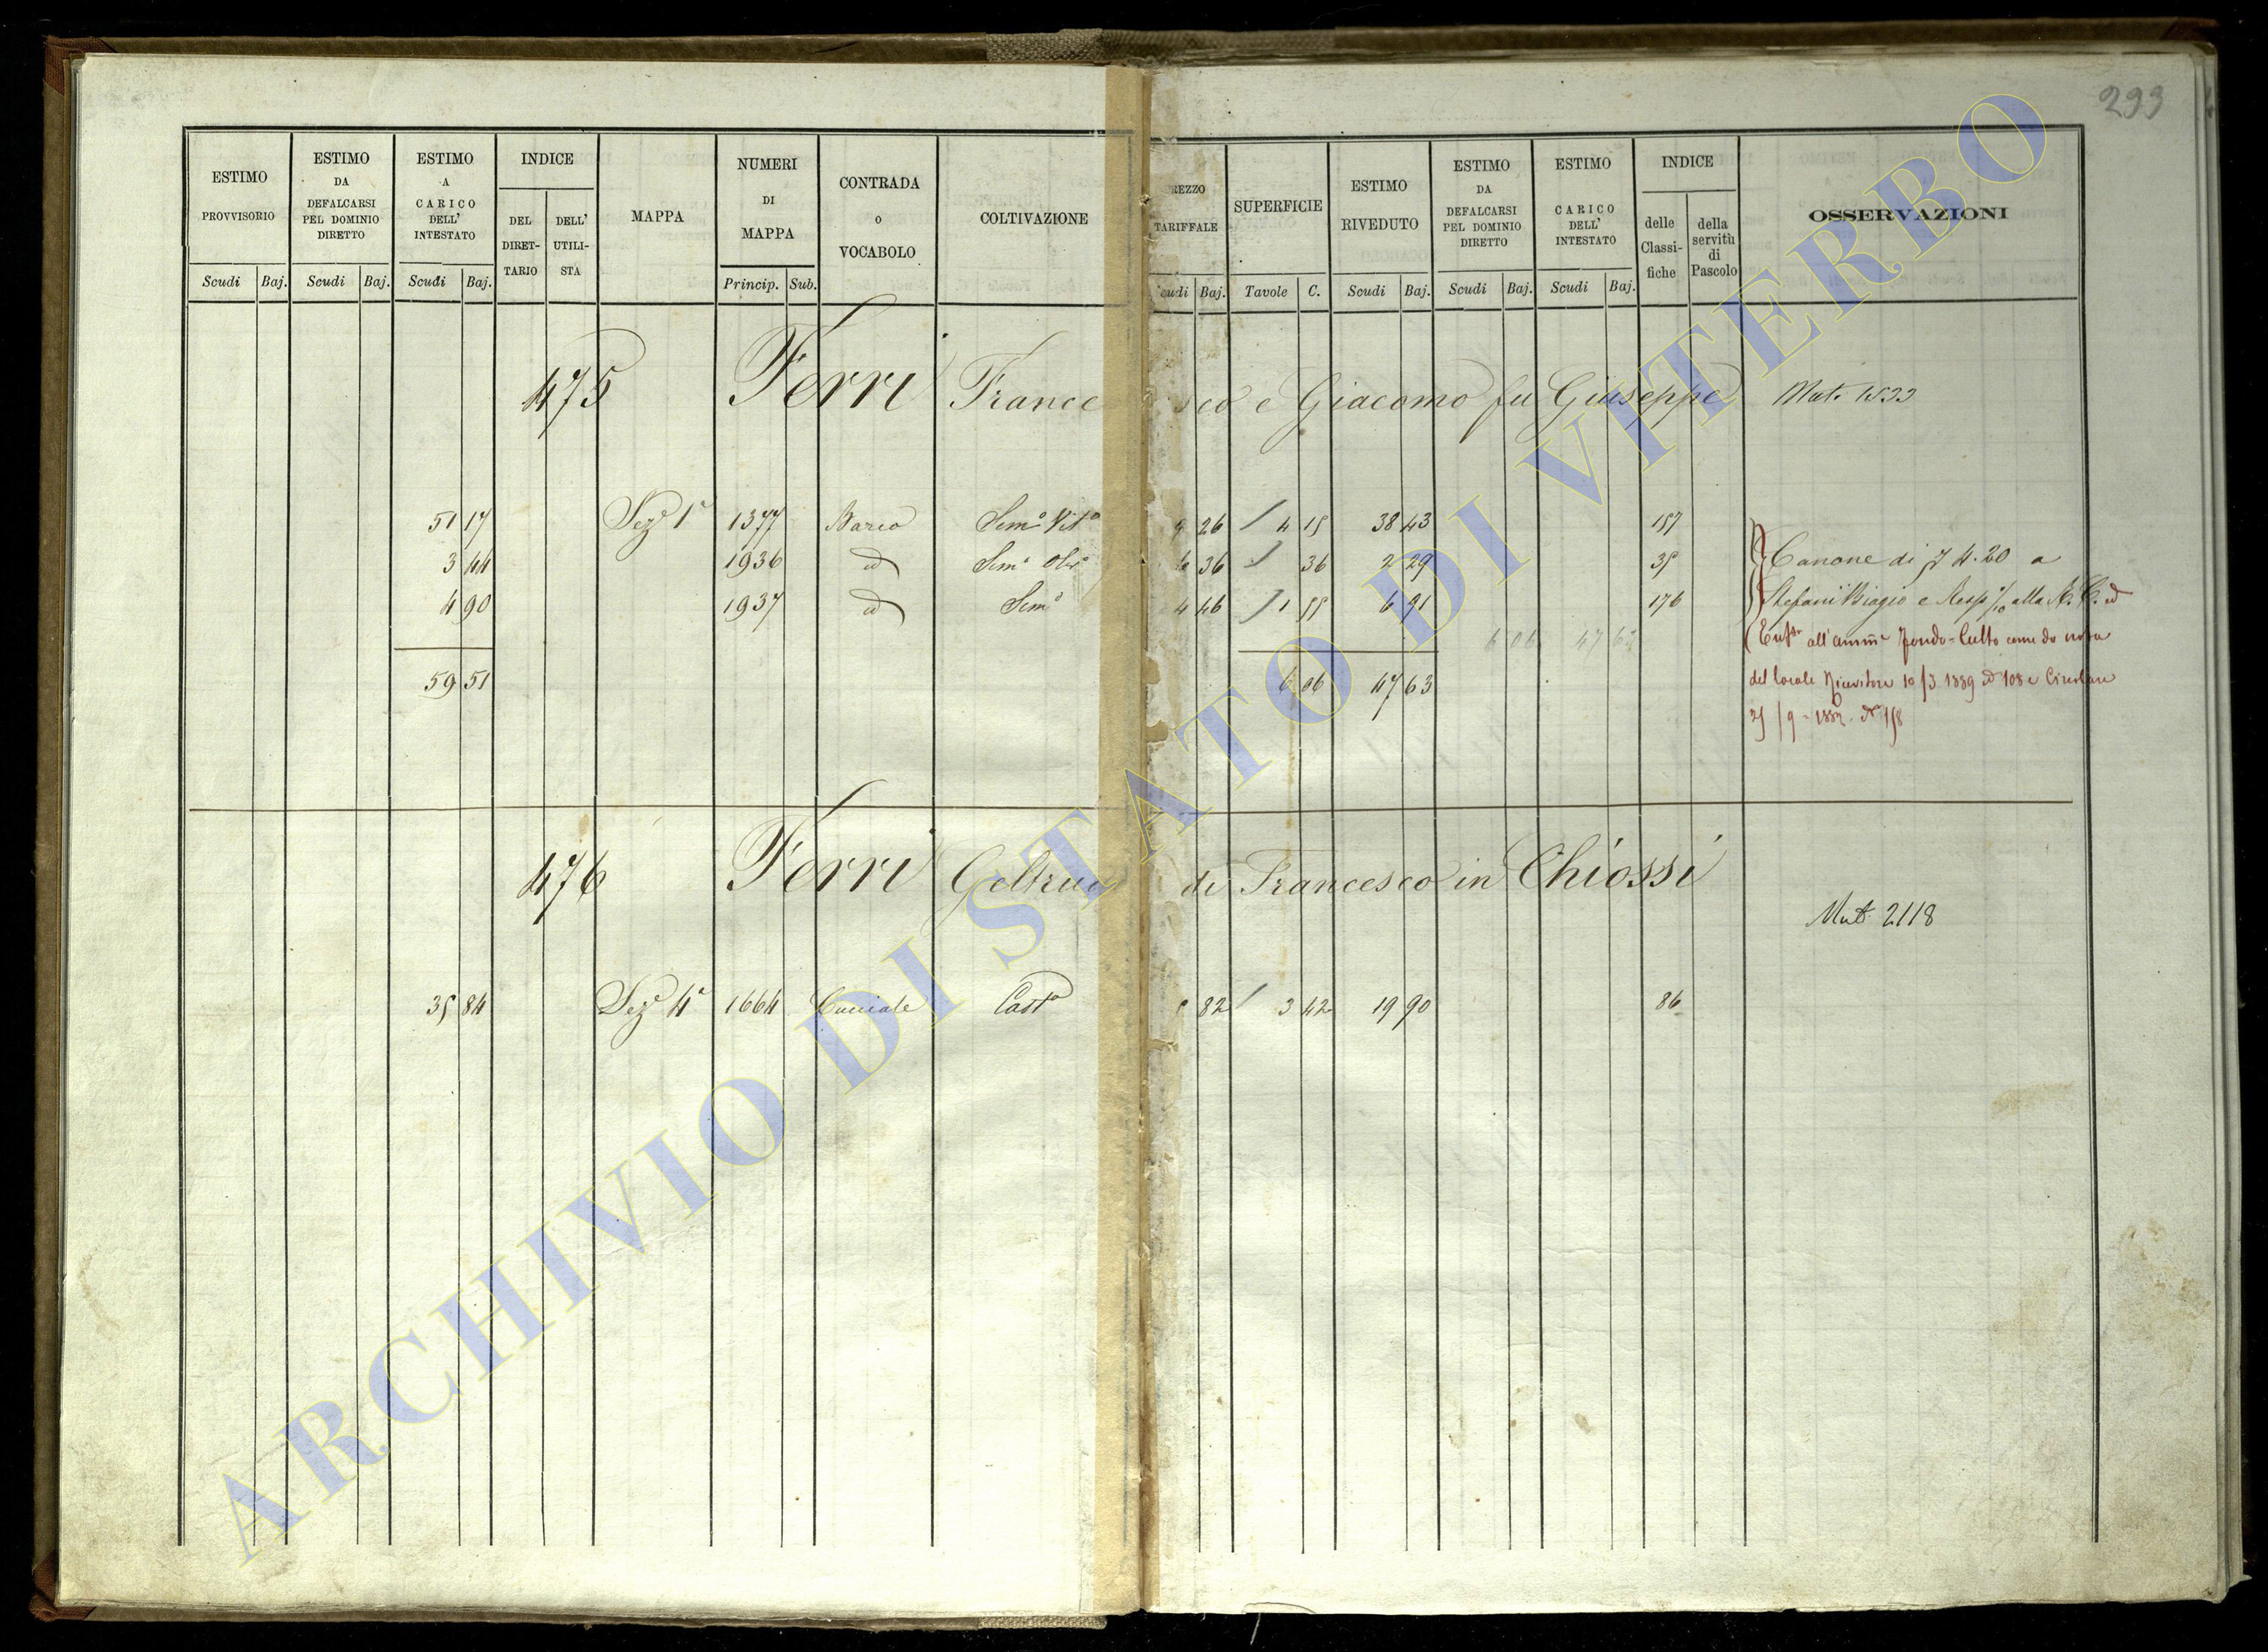 293
ESTIMO PROVVISORIO
ESTIMO DA DEFALCARSI PEL DOMINIO DIRETTO
ESTIMO A CARICO DELL' INTESTATO
INDICE
DEL DIRET-TARIO
DELL' UTILI-STA
MAPPA
NUMERI DI MAPPA
CONTRADA o VOCABOLO
COLTIVAZIONE
PREZZO TARIFFALE
SUPERFICIE
ESTIMO RIVEDUTO
ESTIMO DA DEFALCARSI PEL DOMINIO DIRETTO
ESTIMO CARICO DELL' INTESTATO
INDICE
delle Classi-fiche
della servitù di Pascolo
OSSERVAZIONI
Scudi Baj. Scudi Baj. Scudi Baj. Princip. Sub. Scudi Baj. Tavole C. Scudi Baj. Scudi Baj. Scudi Baj.
475 Ferri Francesco e Giacomo fu Giuseppe Mut. 1533
51 17 Sez. 1ª 1377 Barco Semo Vito 9 26 4 15 38 43 157
3 44 1936 id Semo Olivo 6 36 36 2 29 35 Canone di 4.20 a
4 90 1937 id Semo 4 46 1 55 6 91 176 Stefani Biagio e alla
6 06 47 63 all'amm Fondo-Culto come da nota
59 51 6 06 47 63 del locale Ricevitore 10/3 1889 108 e Circolare
476 Ferri Geltrude di Francesco in Chiossi
Mut. 2118
35 84 Sez. 4ª 1664 Casto 5 82 3 42 19 90 86
ARCHIVIO DI STATO DI VITERBO